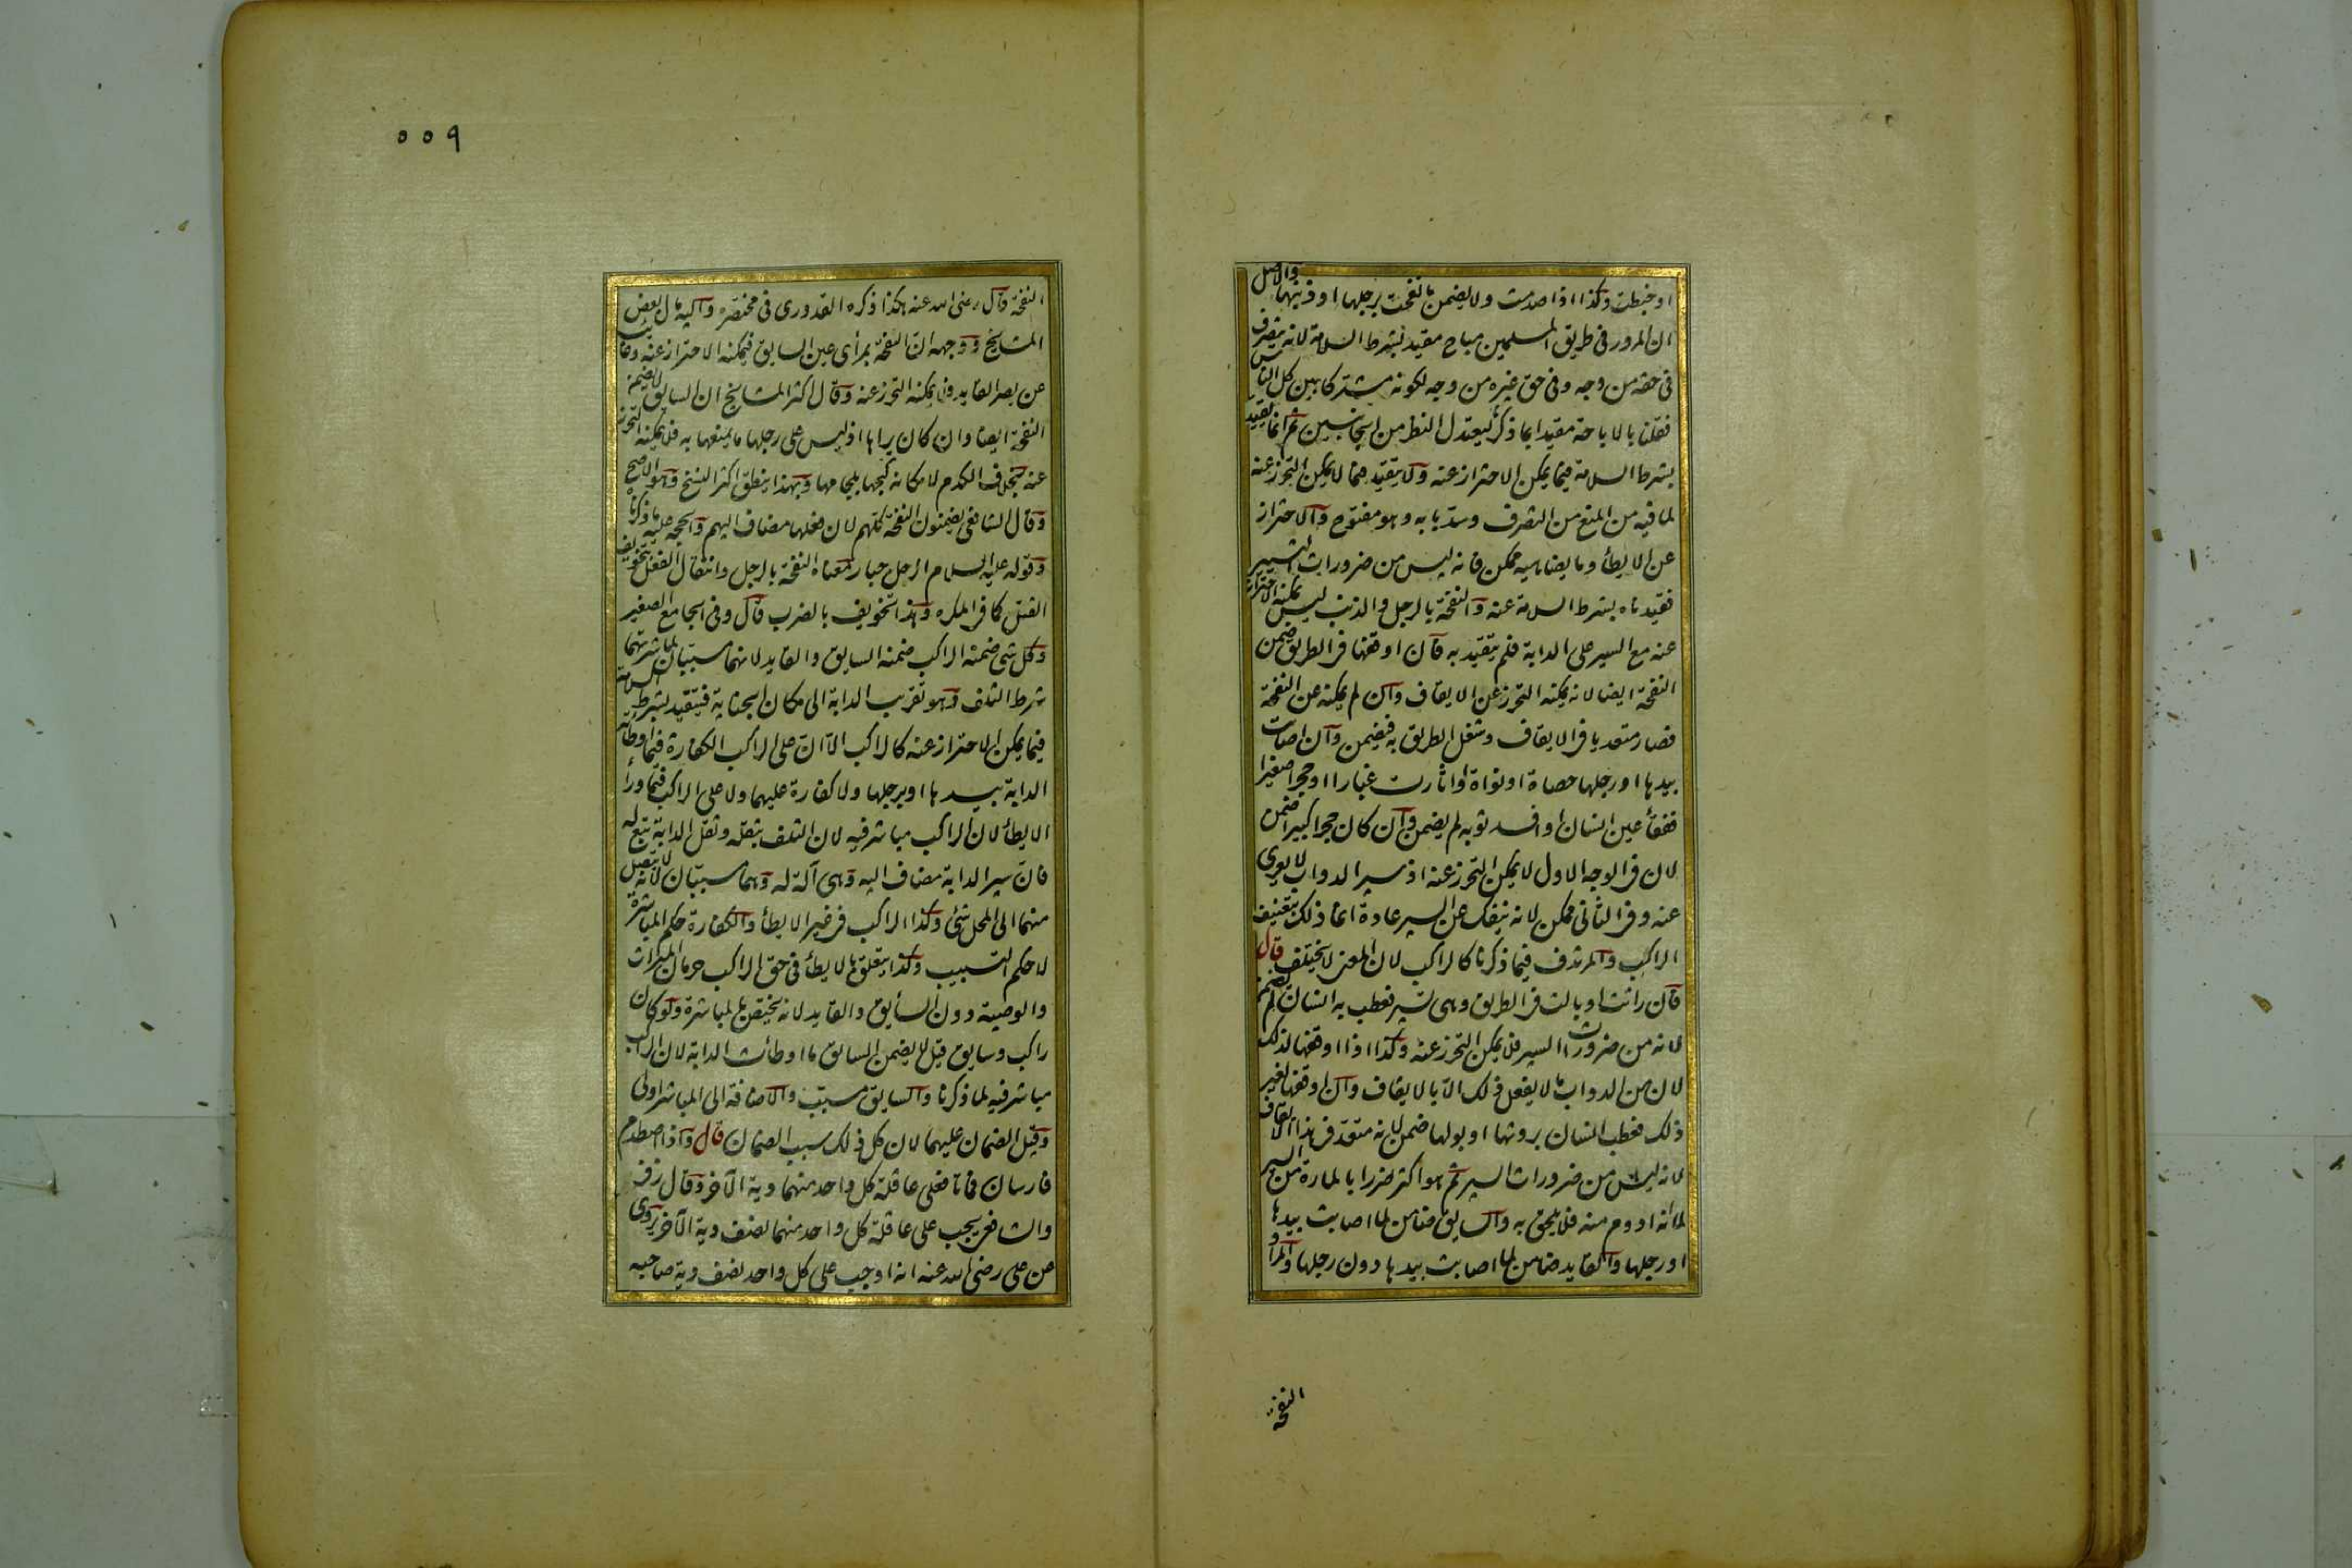 او خبطت وكذا اذا صدمت ولا يضمن ما نفحت برجلها او ذنبها والاصل
ان المرور فى طريق المسلمين مباح مقيد بشرط السلامة لانه يتصرف
فى حقه من وجه وفى حق غيره من وجه لكونه مشتركا بين كل الناس
فقلنا بالاباحة مقيدا بما ذكر ليعتدل النظر من الجانبين ثم انما يتقيد
بشرط السلامة فيما يمكن الاحتراز عنه ولا يتقيد فيما لا يمكن التحرز عنه
لما فيه من المنع من التصرف وسد بابه وهو مفتوح والاحتراز
عن الايطأ وما يضاهيه ممكن فانه ليس من ضرورات التسيير
فقيدناه بشرط السلامة عنه والنفحة بالرجل والذنب ليس يمكنه الاحتراز
عنه مع السير على الدابة فلم يتقيد به فان اوقفها فى الطريق ضمن
النفحة ايضا لانه يمكنه التحرز عن الايقاف وان لم يمكنه عن النفحة
فصار متعديا فى الايقاف وشغل الطريق به فيضمن وان اصابت
بيدها او رجلها حصاة او نواة او اثارت غبارا او حجرا صغيرا
ففقأ عين انسان او افسد ثوبه لم يضمن وان كان حجرا كبيرا ضمن
لان فى الوجه الاول لا يمكن التحرز عنه اذ سير الدواب لا يعرى
عنه وفى الثانى ممكن لانه ينفك عن السير عادة انما ذلك بتعنيف
الراكب والمرتدف فيما ذكرنا كالراكب لان المعنى لا يختلف قال
فان راثت او بالت فى الطريق وهى تسير فعطب به انسان لم يضمن
لانه من ضرورات السير فلا يمكن التحرز عنه وكذا اذا اوقفها لذلك
لان من الدواب ما لا يفعل ذلك الا بالايقاف وان اوقفها لغير
ذلك فعطب انسان بروثها او بولها ضمن لانه متعد فى هذا الايقاف
لانه ليس من ضرورات السير ثم هو اكثر ضررا بالمارة من السير
لما انه ادوم منه فلا يلحق به والسايق ضامن لما اصابت بيدها
او رجلها والقايد ضامن لما اصابت بيدها دون رجلها والمراد
النفحة
٥٥٩
النفحة قال رضى الله عنه هكذا ذكره القدورى فى مختصره واليه مال بعض
المشايخ ووجهه ان النفحة بمرأى عين السايق فيمكنه الاحتراز عنه وغايب
عن بصر القايد فلا يمكنه التحرز عنه وقال اكثر المشايخ ان السايق لا يضمن
النفحة ايضا وان كان يراها اذ ليس على رجلها ما يمنعها به فلا يمكنه التحرز
عنه بخلاف الكدم لامكانه كبحها بلجامها وبهذا ينطق اكثر النسخ وهو الاصح
وقال الشافعى يضمنون النفحة كلهم لان فعلها مضاف اليهم والحجة عليه ما ذكرناه
وقوله عليه السلام الرجل جبار معناه النفحة بالرجل وانتقال الفعل بتخويف
القتل كما فى المكره وهذا تخويف بالضرب قال وفى الجامع الصغير
وكل شئ ضمنه الراكب ضمنه السايق والقايد لانهما مسببان لمباشرتهما
شرط التلف وهو تقريب الدابة الى مكان الجناية فيتقيد بشرط السلامة
فيما يمكن الاحتراز عنه كالراكب الا ان على الراكب الكفارة فيما اوطأته
الدابة بيدها او برجلها ولا كفارة عليهما ولا على الراكب فيما ورأ
الايطأ لان الراكب مباشر فيه لان التلف بثقله وثقل الدابة تبع له
فان سير الدابة مضاف اليه وهى آلة له وهما مسببان لانه لا يتصل
منهما الى المحل شئ وكذا الراكب فى غير الايطأ والكفارة حكم المباشرة
لا حكم التسبيب وكذا يتعلق بالايطأ فى حق الراكب حرمان الميراث
والوصية دون السايق والقايد لانه يختص بالمباشرة ولو كان
راكب وسايق قيل لا يضمن السايق ما اوطأت الدابة لان الراكب
مباشر فيه لما ذكرنا والسايق مسبب والاضافة الى المباشر اولى
وقيل الضمان عليهما لان كل ذلك سبب الضمان قال واذا اصطدم
فارسان فماتا فعلى عاقلة كل واحد منهما دية الآخر وقال زفر
والشافعى يجب على عاقلة كل واحد منهما نصف دية الآخر يروى
عن على رضى الله عنه انه اوجب على كل واحد نصف دية صاحبه